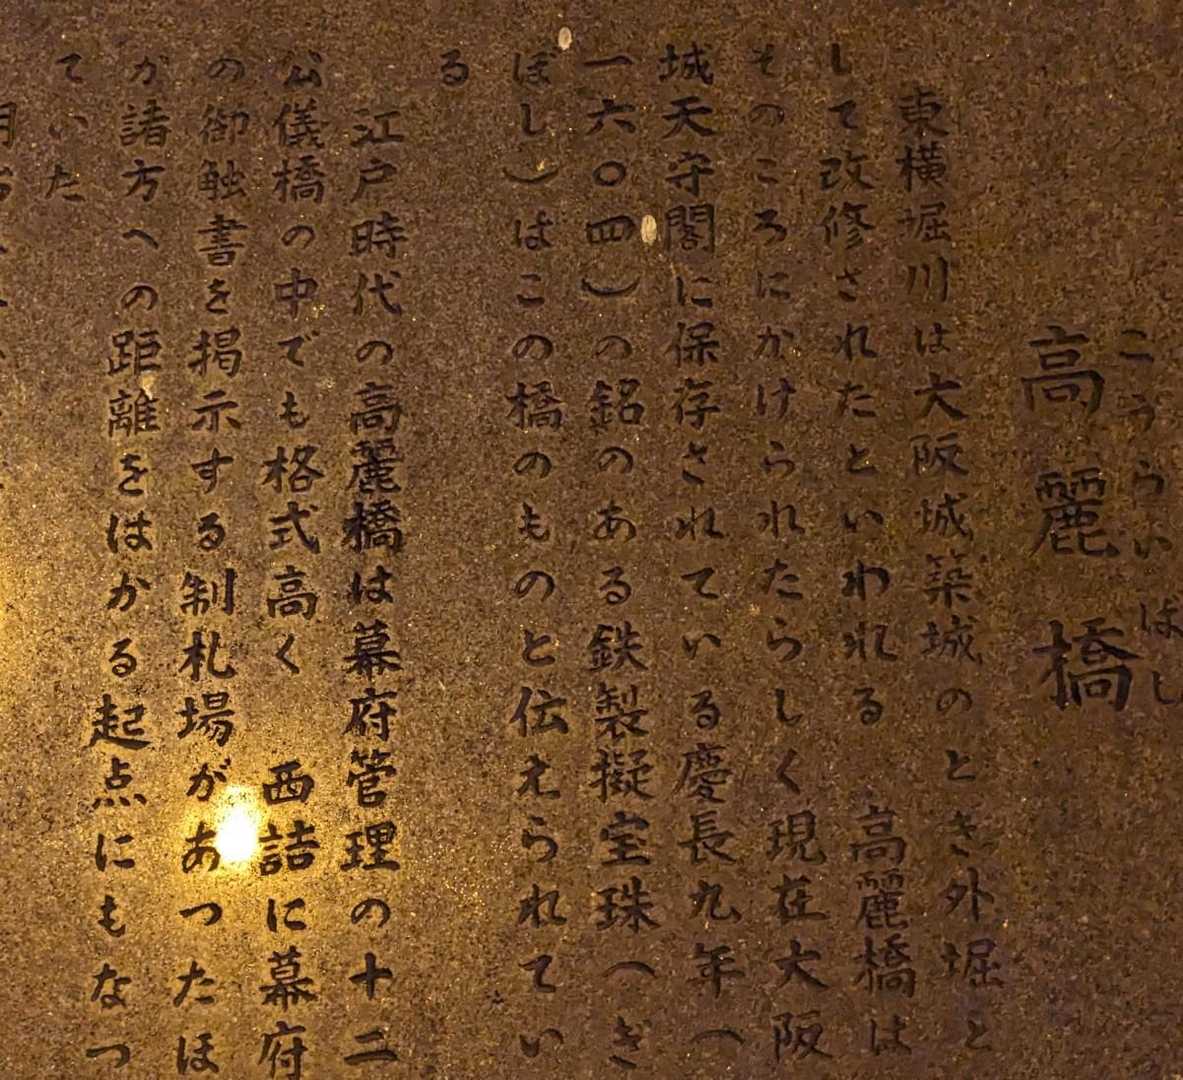 こうらいばし
高麗橋
東横堀川は大阪城築城のとき外堀と
して改修されたといわれる　高麗橋は
そのころにかけられたらしく現在大阪
城天守閣に保存されている慶長九年（
一六〇四）の銘のある鉄製擬宝珠（ぎ
ぼし）はこの橋のものと伝えられてい
る
江戸時代の高麗橋は幕府管理の十二
公儀橋の中でも格式高く　西詰に幕府
の御触書を掲示する制札場があったほ
か諸方への距離をはかる起点にもなっ
ていた